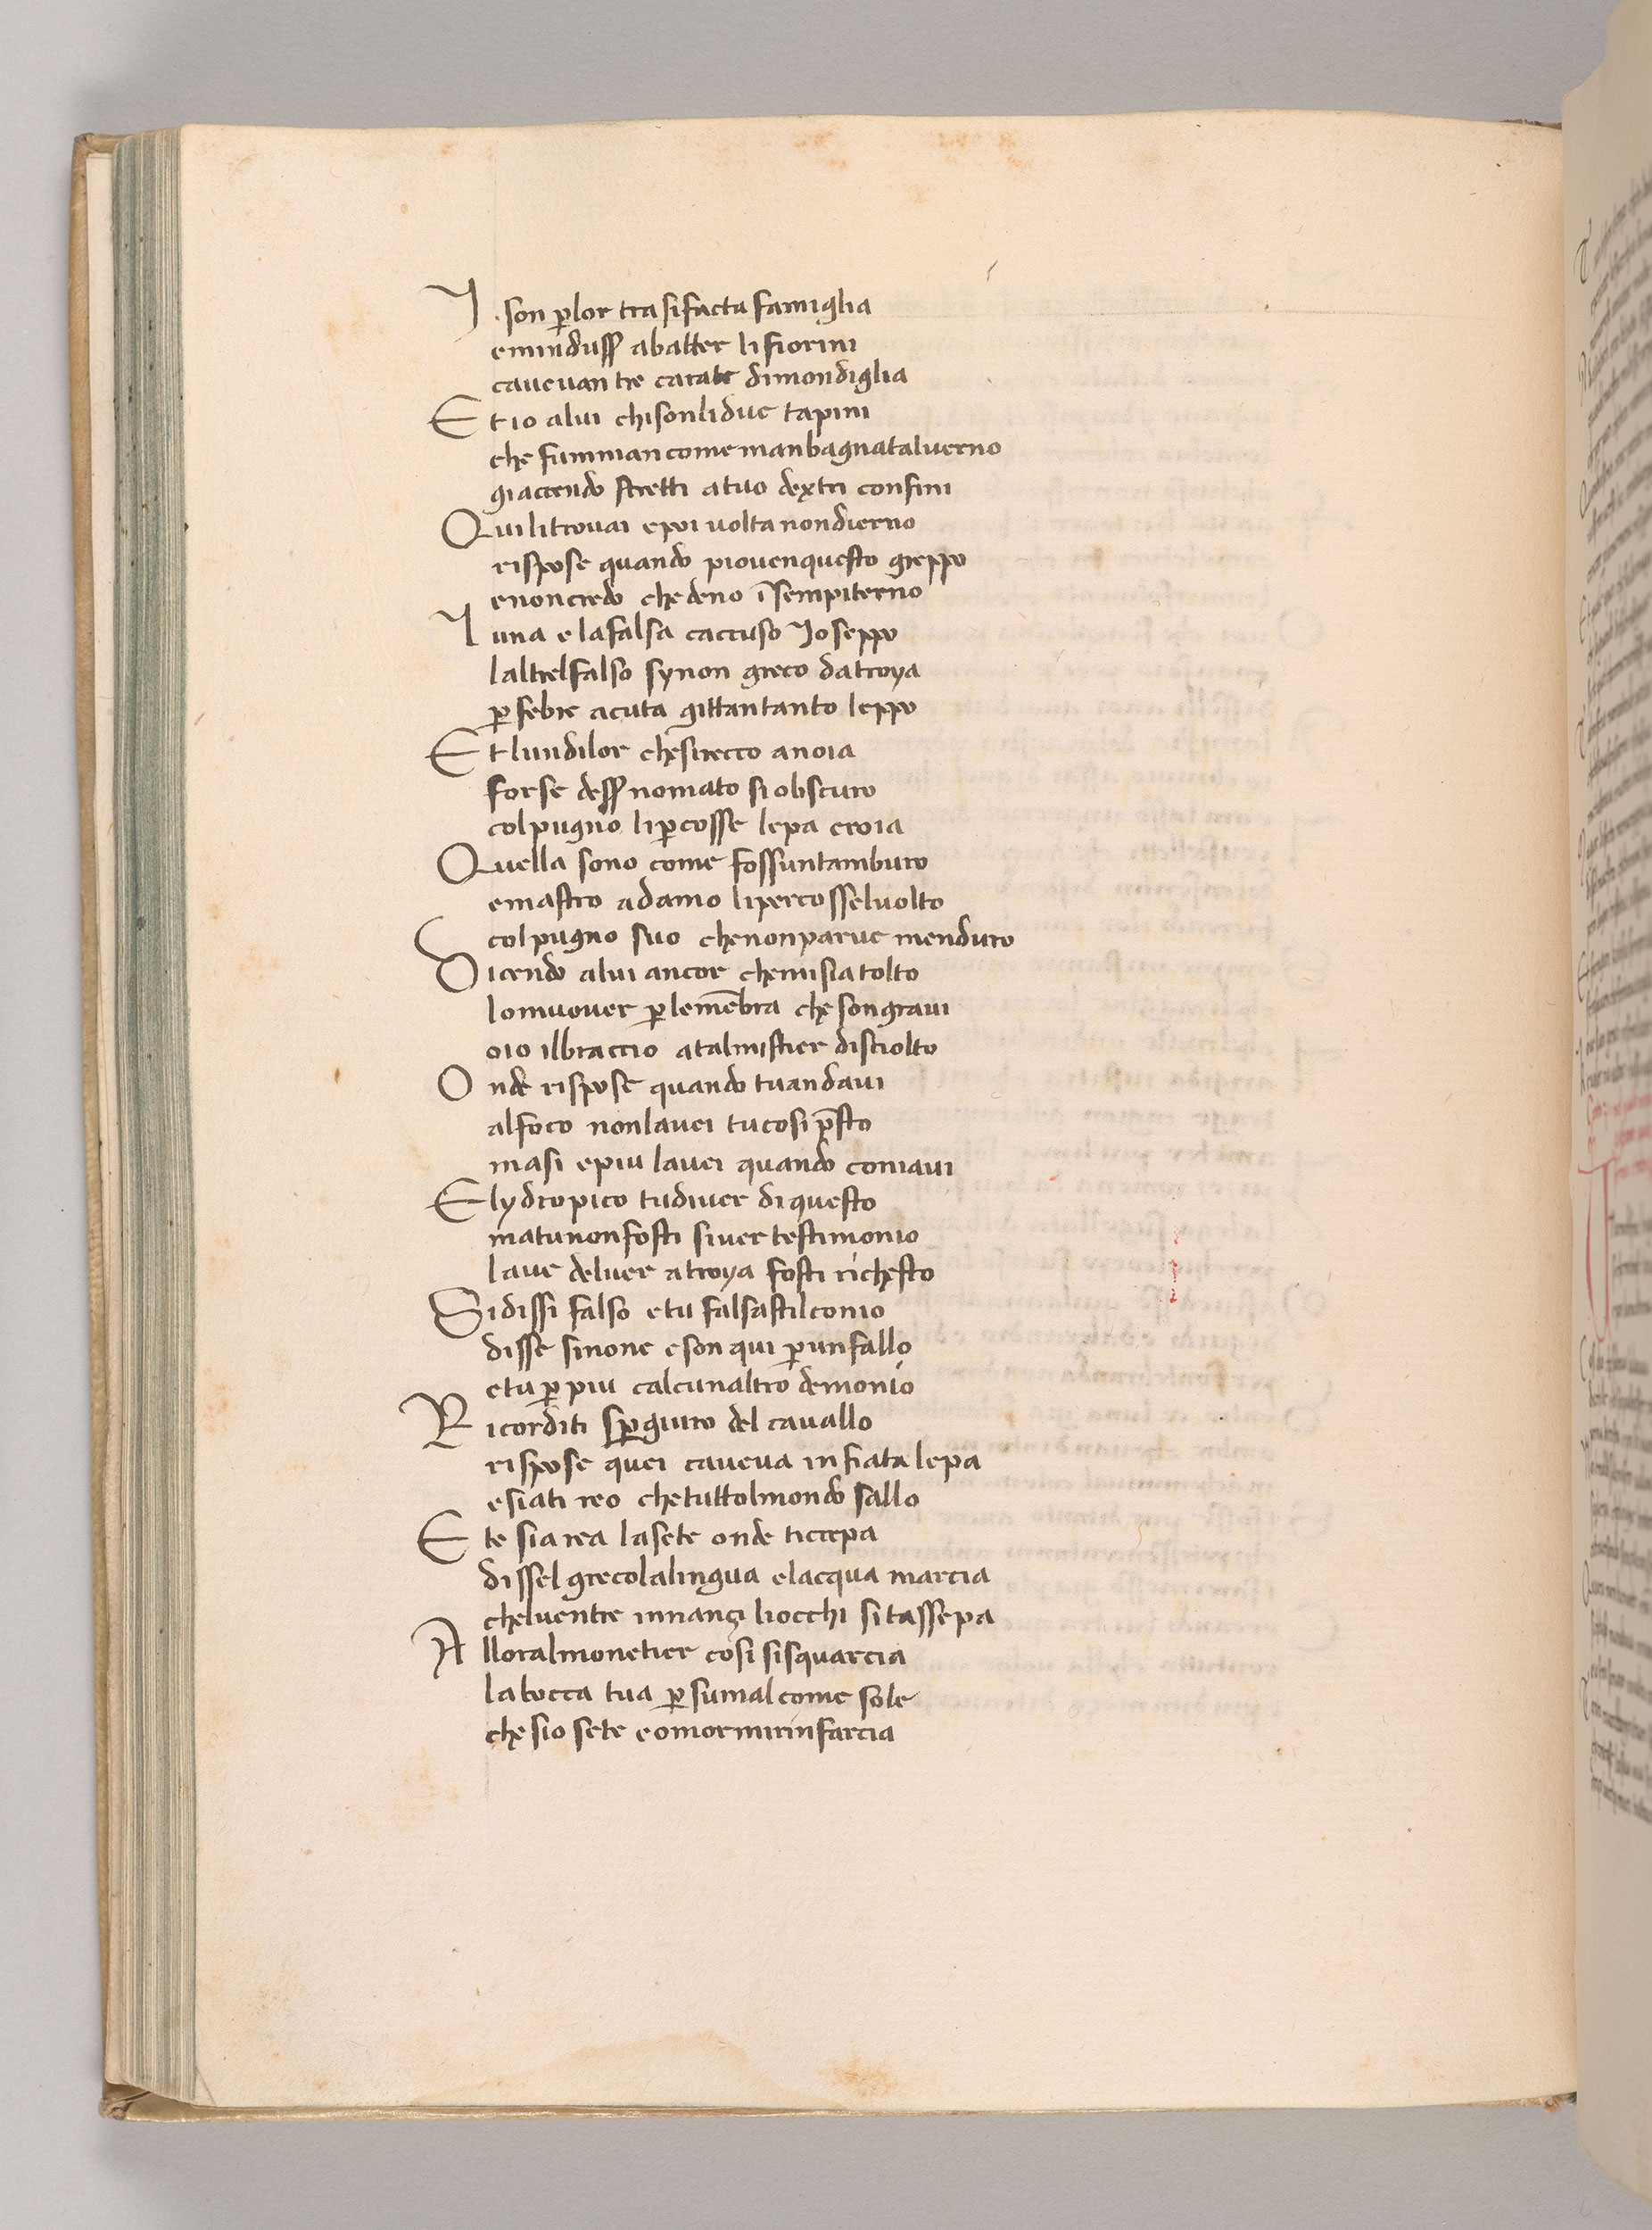 I son ꝑlor tra sifacta famiglia
emindusſ abatter li fiorini
caueuan tre carate dimondiglia
Et io alui chisonlidue tapini
che fumman come manbagnataluerno
giacendo stretti atuo dextri confini
Qui litrouai epoi uolta nondierno
rispose quando piouenquesto greppo
enoncredo che deno ĩ sempiterno
Luna e lafalsa caccuso Ioseppo
laltrelfalso synon greco datroya
ꝑ febre acuta gittantanto leppo
Et lundilor chesirecco anoia
forse desſ nomato si obscuro
colpugno li ꝑcosse lepa croia
Quella sono come fossuntamburo
emastro adamo lipercosseluolto
colpugno suo chenonparue menduro
Dicendo alui ancor chemisiatolto
lomuouer ꝑ lemẽbra che songraui
oio ilbraccio atalmistier disciolto
Onde rispose quando tuandaui
alfoco nonlauei tucosi p̃sto
masi epiu lauei quando coniaui
Elydropico tudiuer diquesto
matunonfosti siuer testimonio
laue deluer atroya fosti richesto
Sidissi falso etu falsastilconio
disse sinone eson qui ꝑ unfallo
etu ꝑ piu calcunaltro demonio
Ricorditi sꝑgiuro del cauallo
rispose quei caueua infiata lepa
esiati reo chetuttolmondo sallo
Ete sia rea lasete onde ticrepa
dissel grecolalingua elacqua marcia
cheluentre innançi liocchi sitassepa
Alloralmonetier cosi sisquarcia
labocca tua ꝑ sumal come sole
che sio sete eomormirinfarcia